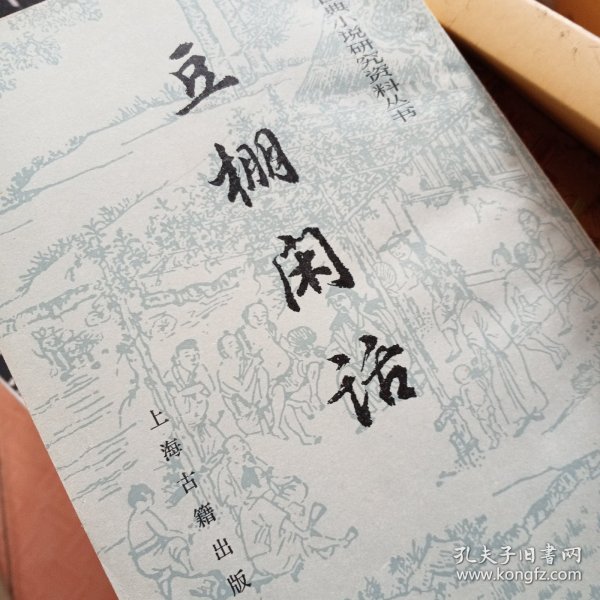 典小说研究资料丛书
豆棚闲话
上海古籍出版
孔夫子旧书网
www.kongfz.com